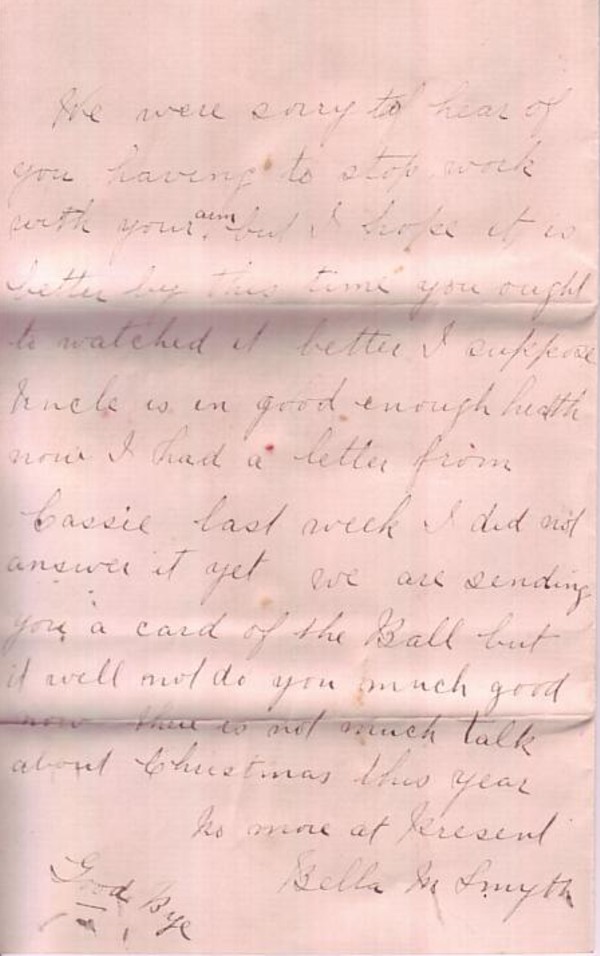 We were sorry to hear of
you having to stop work
with your arm but I hope it is
better by this time you ought
to watched it better I suppose
Uncle is in good enough health
now I had a letter from
Cassie last week I did not
answer it yet we are sending
you a card of the Ball but
it will not do you much good
now there is not much talk
about Christmas this year
No more at Present
Bella M Smyth
Good Bye